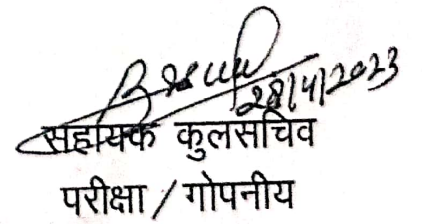 28/4/2023
सहायक कुलसचिव
परीक्षा / गोपनीय